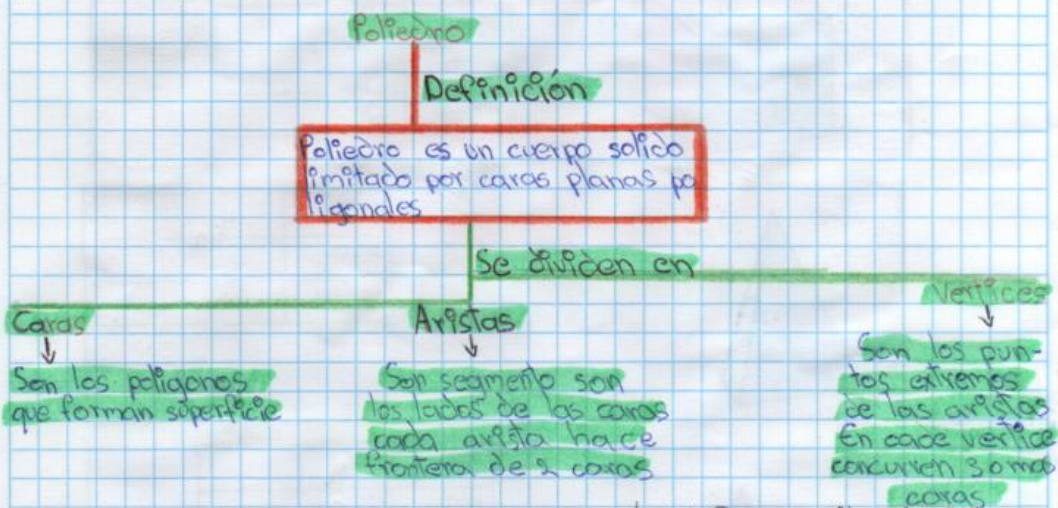 Poliedro
Definición
Poliedro es un cuerpo solido
limitado por caras planas po
ligonales
Se dividen en
Caras
Son los poligonos
que forman superficie
Aristas
Son segmento son
los lados de las caras
cada arista hace
frontera de 2 caras
Vertices
Son los pun-
tos extremos
de las aristas
En cada vertice
concurren 3 o mas
caras